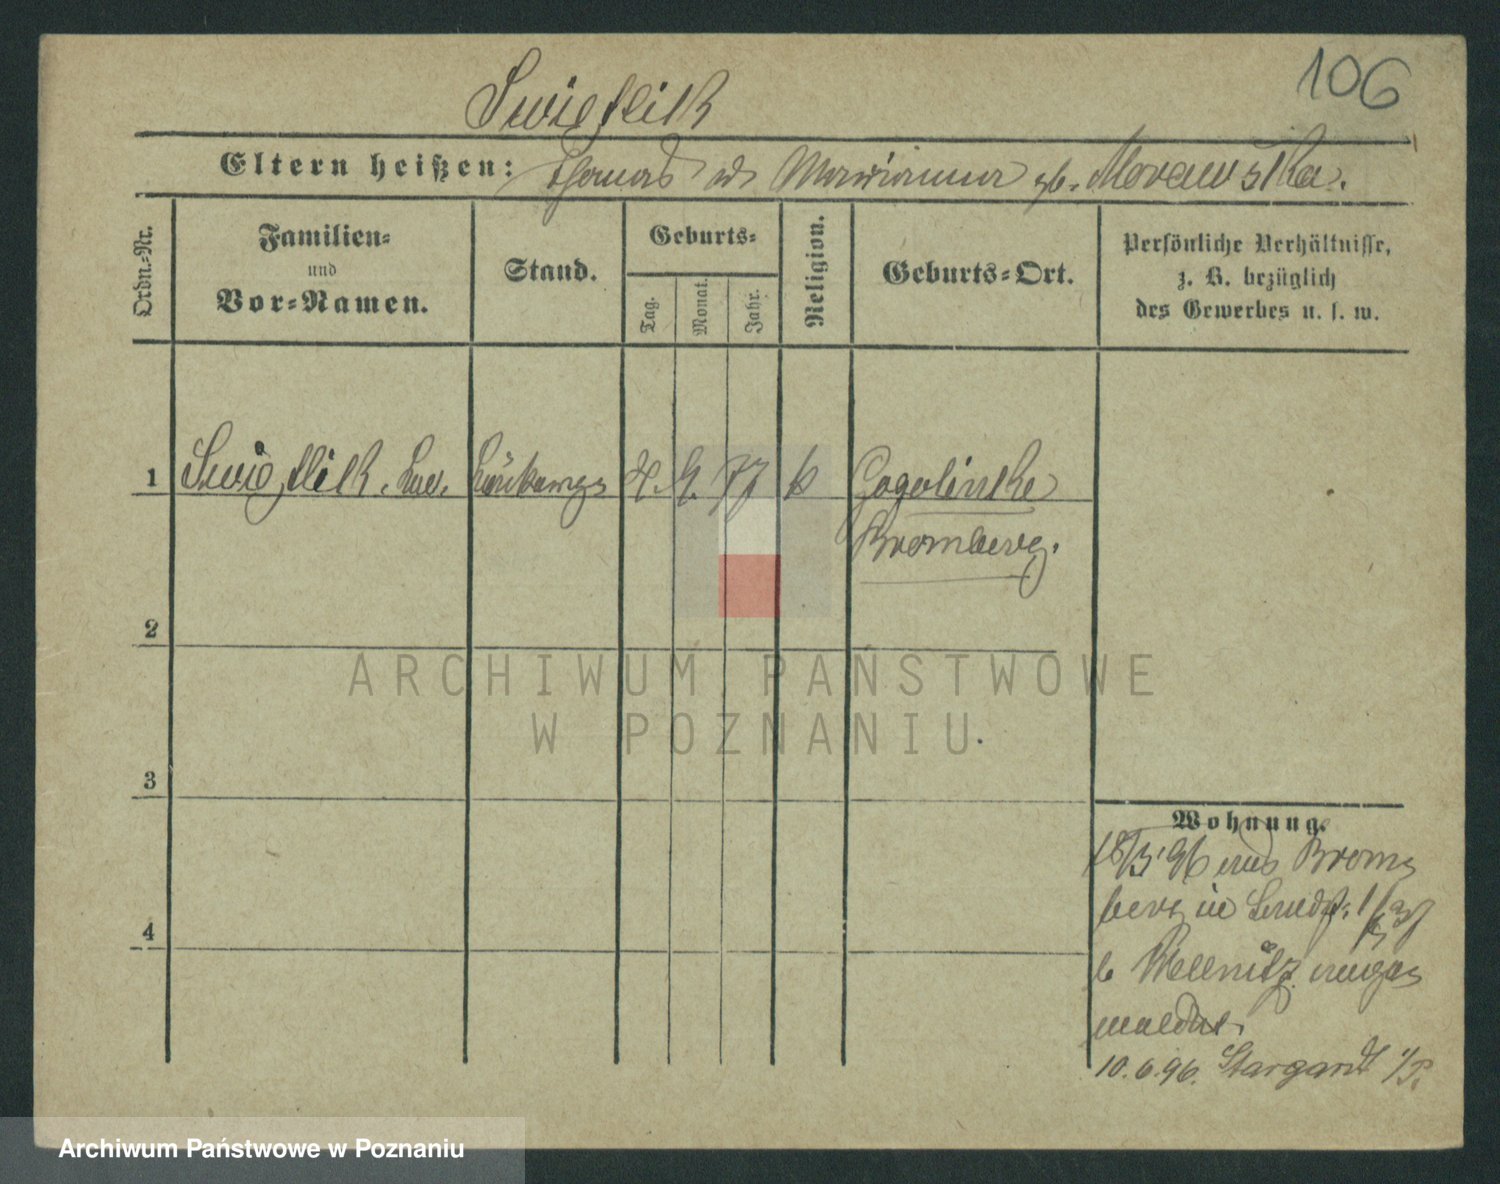 106
Swietlik
Eltern heißen: Thomas u Marianna gb. Morawska.
Ordn.-Nr.
Familien-
und
Vor-Namen.
Stand.
Geburts-
Tag.
Monat.
Jahr.
Religion.
Geburts-Ort.
Persönliche Verhältnisse,
z. B. bezüglich
des Gewerbes u. s. w.
1 Swietlik, 77 k Gogolinke
Bromberg.
2
3
4
Wohnung.
18/3 96 aus Brom-
berg in
b
meldet.
10.6.96. Stargardt i/P.
ARCHIWUM PAŃSTWOWE
W POZNANIU
Archiwum Państwowe w Poznaniu